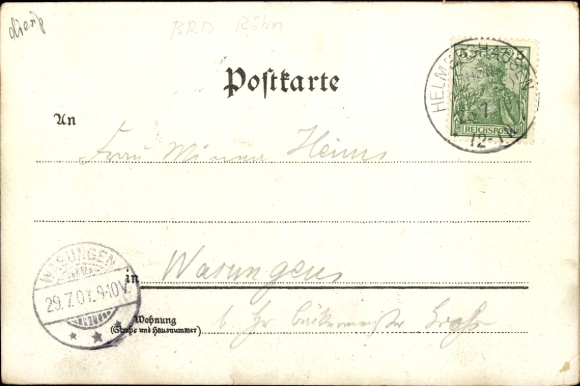 BRD Röhn
Postkarte
HELMERSHAUSEN
REICHSPOST
12-1
An
Frau Minna Heims
WASUNGEN
29.7.01.9-10V.
in Wasungen
Wohnung
(Straße und Hausnummer)
b. Hr. Bäckermeister